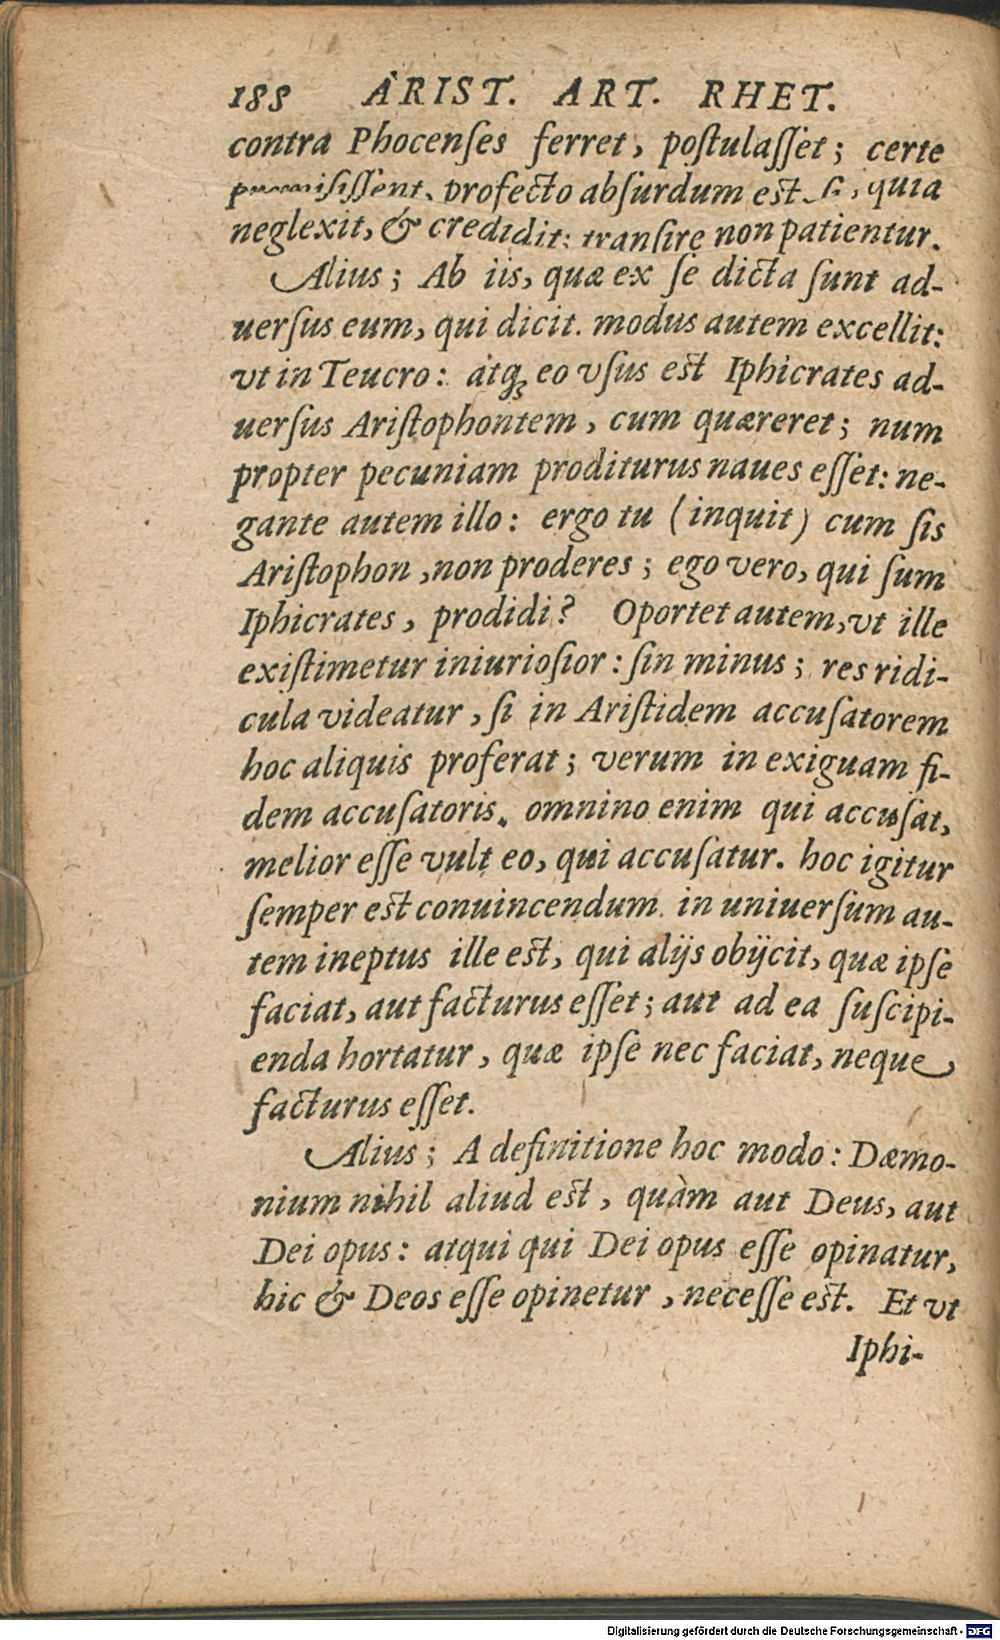 188 ARIST. ART. RHET.
contra Phocenſes ferret, poſtulaſſet; certe
profecto abſurdum est quia
neglexit, & credidit: tranſire non patientur.
Alius; Ab iis, quæ ex ſe dicta ſunt ad-
uerſus eum, qui dicit. modus autem excellit:
vt in Teucro: atq; eo vſus est Iphicrates ad-
uerſus Ariſtophontem, cum quæreret; num
propter pecuniam proditurus naues eſſet: ne-
gante autem illo: ergo tu (inquit) cum ſis
Ariſtophon, non proderes; ego vero, qui ſum
Iphicrates, prodidi? Oportet autem, vt ille
exiſtimetur iniurioſior: ſin minus; res ridi-
cula videatur, ſi in Ariſtidem accuſatorem
hoc aliquis proferat; verum in exiguam fi-
dem accuſatoris. omnino enim qui accuſat,
melior eſſe vult eo, qui accuſatur. hoc igitur
ſemper est conuincendum. in uniuerſum au-
tem ineptus ille est, qui alijs obijcit, quæ ipſe
faciat, aut facturus eſſet; aut ad ea ſuſcipi-
enda hortatur, quæ ipſe nec faciat, neque
facturus eſſet.
Alius; A definitione hoc modo: Dæmo-
nium nihil aliud est, quàm aut Deus, aut
Dei opus: atqui qui Dei opus eſſe opinatur,
hic & Deos eſſe opinetur, neceſſe est. Et vt
Iphi-
Digitalisierung gefördert durch die Deutsche Forschungsgemeinschaft - DFG